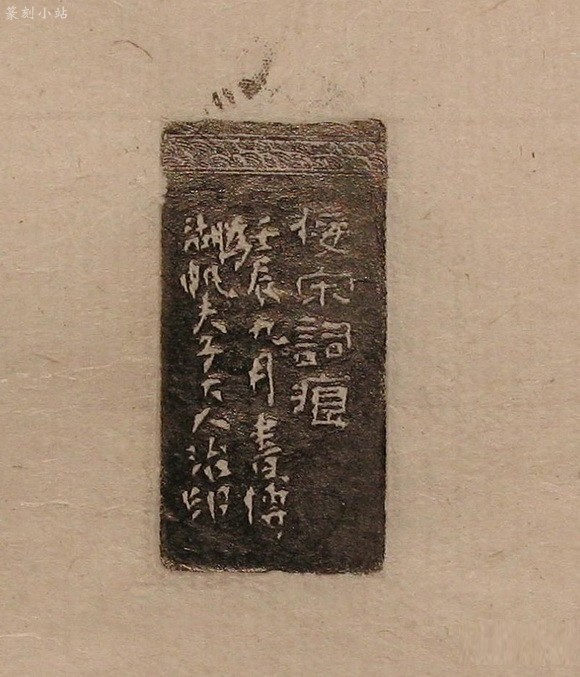 篆刻小站
佞宋詞痕
壬辰九月書博
湖帆夫子大人治印